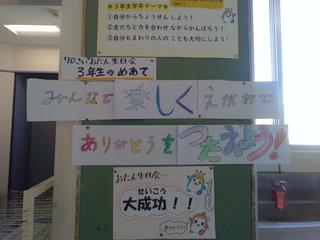 ＊３年生学年テーマ＊
①自分からちょうせんしよう！
②友だちと力を合わせながらがんばろう！
③自分もまわりの人のことも大切にしよう！
70さいおたん生日会
３年生のめあて
みんなで楽しくえがおで
ありがとうをつたえよう！
おたん生日会
せいこう
大成功！！
ありがとう